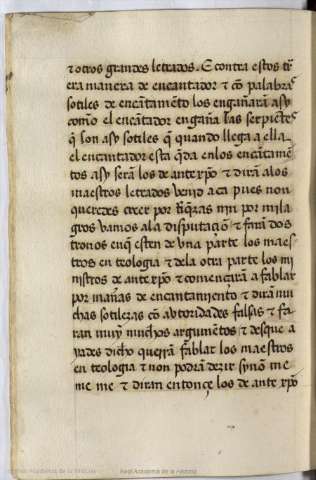 ⁊ otros grandes letrados. E contra estos tr̃
era manera de encantador ⁊ cõ palabras
sotiles de encãtamẽto los engañarã asy
como el encãtador engaña las serpiẽtes
q̃ son asy sotiles q̃ quando llega a ella
el encantador esta q̃da en los encãtamẽ
tos asy serã los de ante xp̃o ⁊ dirã a los
maestros letrados venid aca pues non
queredes creer por riq̃zas nin por mila
gros vamos a la disputaçiõ ⁊ farã dos
tronos en q̃ esten de vna parte los maes
tros en teologia ⁊ de la otra parte los mi
nistros de ante xp̃o ⁊ començarã a fablar
por mañas de encantamiento ⁊ dirã mu
chas sotilezas cõ abtoridades falsas ⁊ fa
ran muy muchos argumẽtos ⁊ desque a
dicho querrã fablar los maestros
en teologia ⁊ non podrã dezir synõ me
me me ⁊ diran entonçe los de ante xp̃o
Real Academia de la Historia